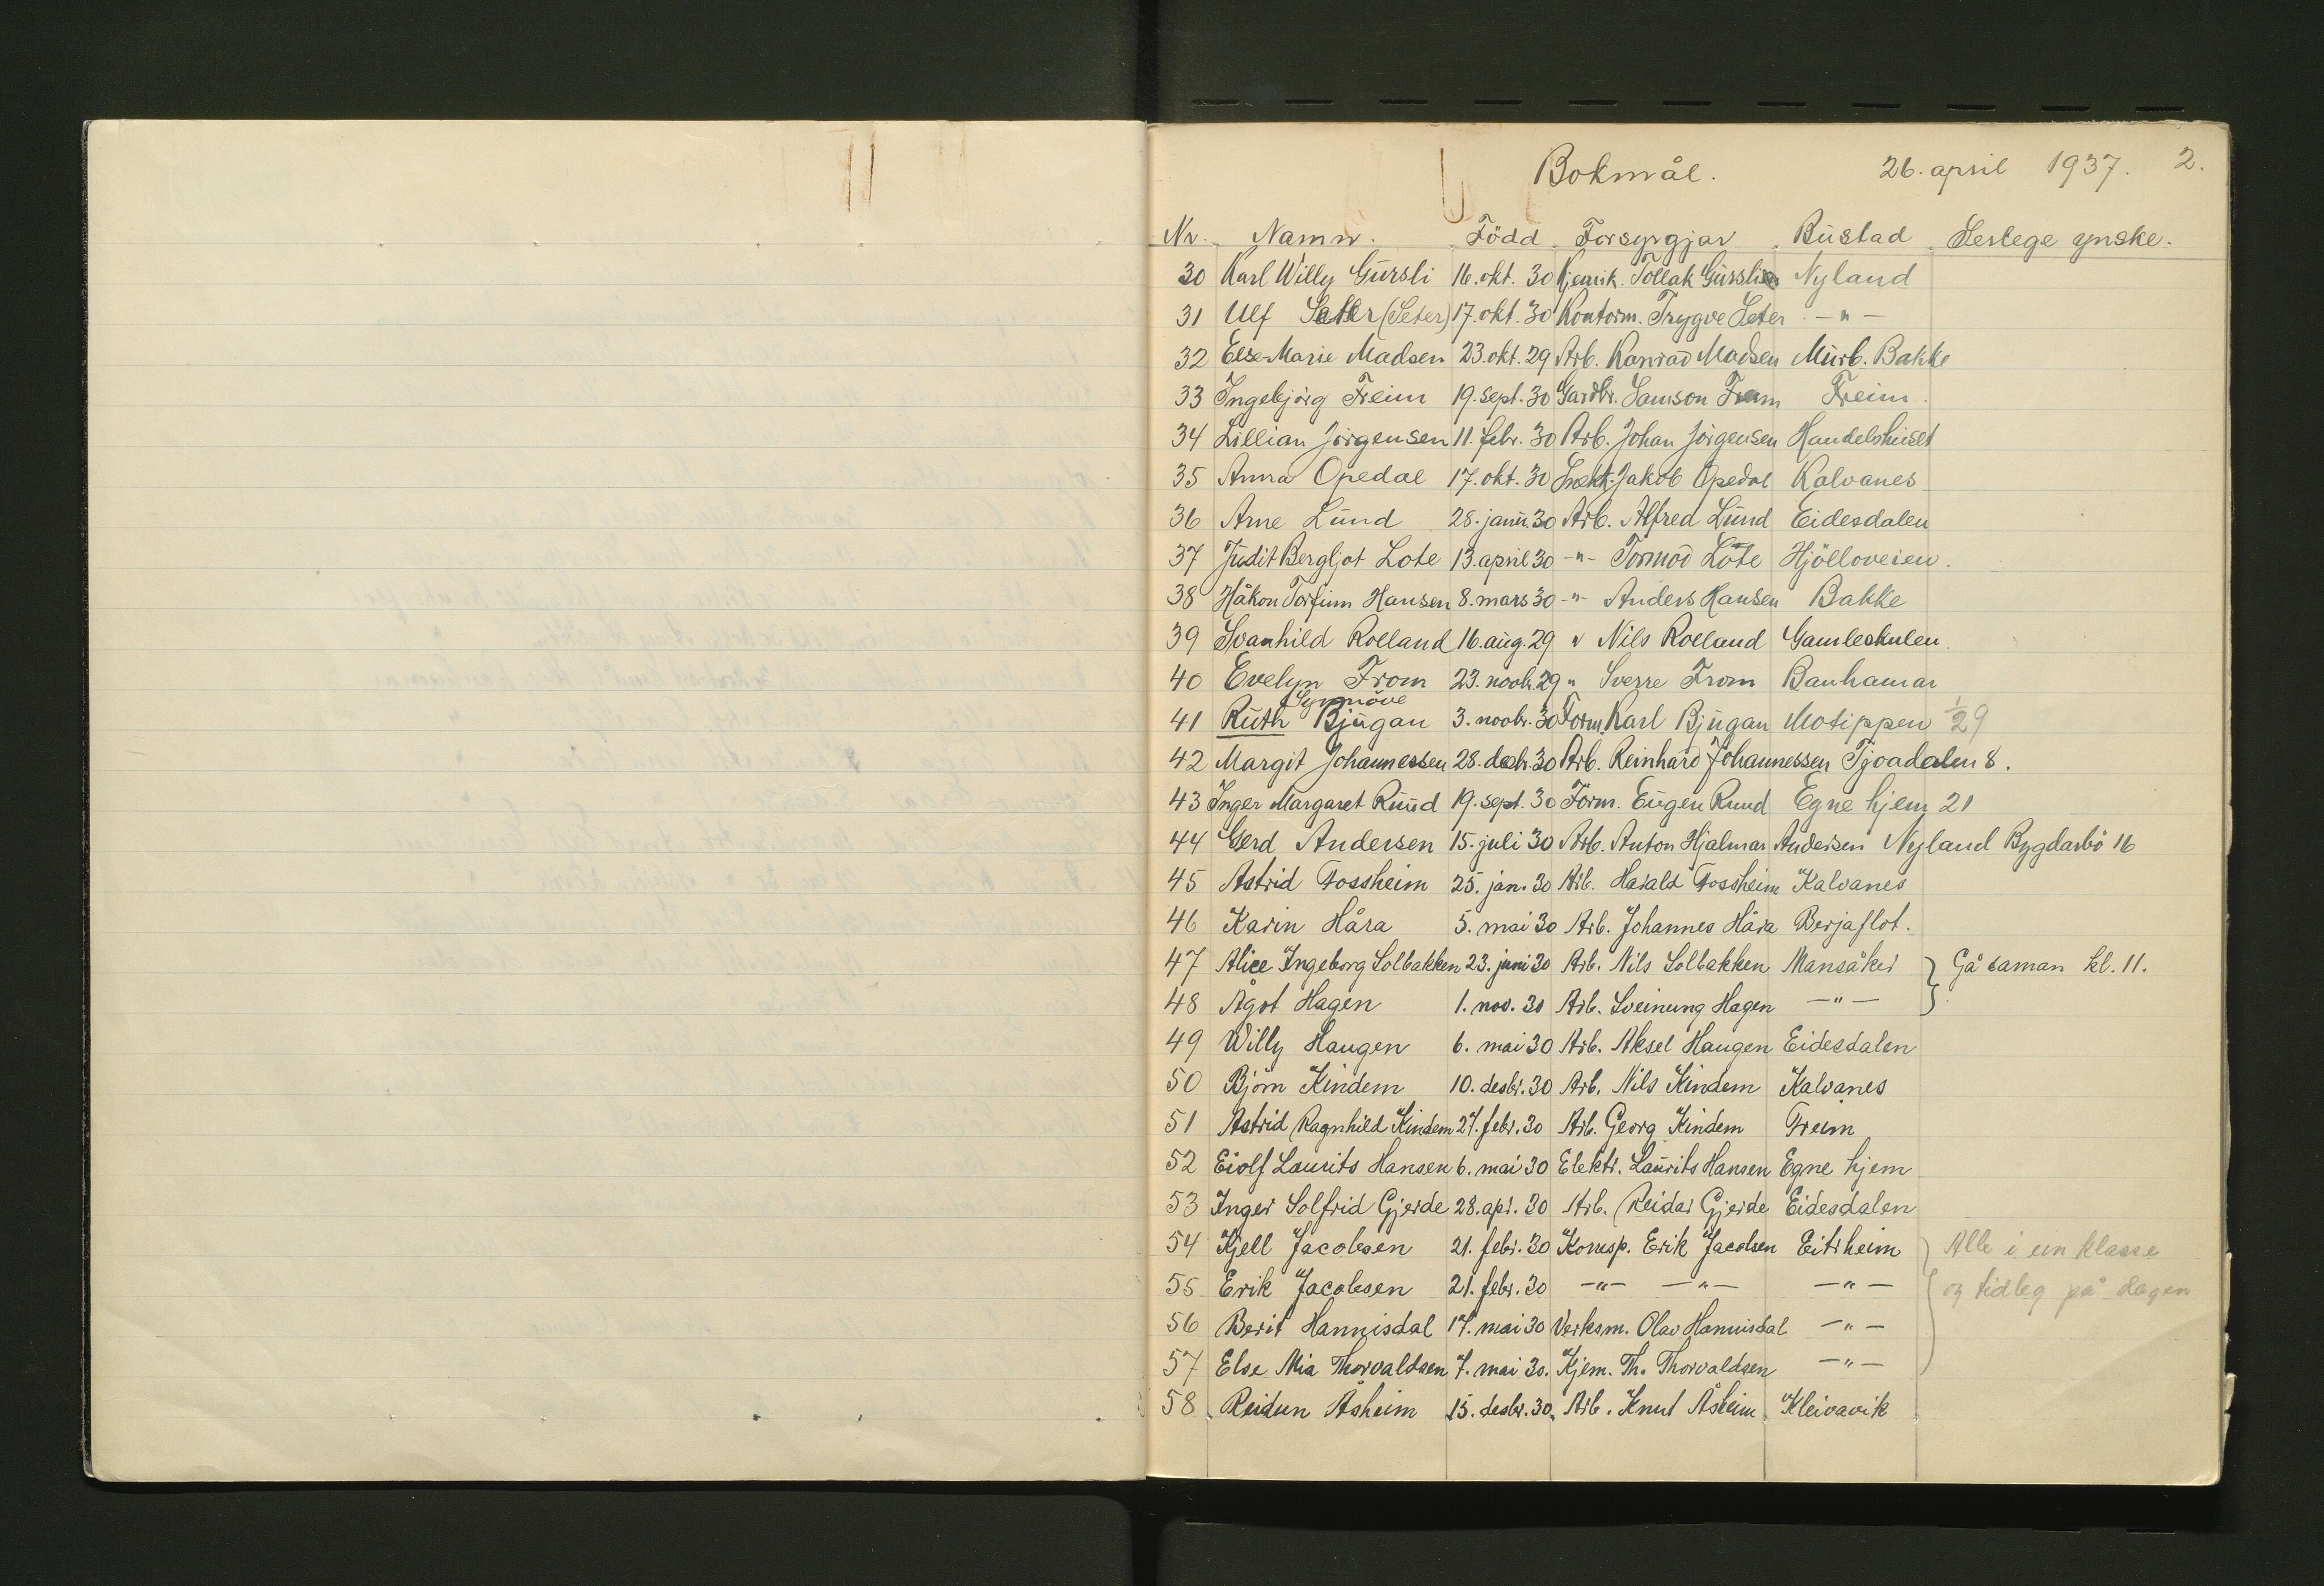 Bokmål. 26. april 1937. 2.
Nr. Namn. Född Forsyrgjar Bustad Serlege ynske.
30 Karl Willy Gursli 16. okt. 30 Kjemik. Tollak Gursli Nyland
31 Ulf Sæter (Seter) 17. okt. 30 Kontorm. Trygve Seter -"-
32 Else-Marie Madsen 23. okt. 29 Arb. Konrad Madsen Murb. Bakke
33 Ingebjörg Freim 19. sept. 30 Gardbr. Samson Freim Freim.
34 Lillian Jörgensen 11. febr. 30 Arb. Johan Jörgensen Handelshuset
35 Anna Opedal 17. okt. 30 Snekk. Jakob Opedal Kalvanes
36 Arne Lund 28. janu. 30 Arb. Alfred Lund Eidesdalen
37 Judit Bergljot Lote 13. april 30 -"- Tormod Lote Hjölloveien.
38 Håkon Torfinn Hansen 8. mars 30 -"- Anders Hansen Bakke
39 Svanhild Rolland 16. aug. 29 " Nils Rolland Gamleskulen.
40 Evelyn From 23. novbr. 29 " Sverre From Banhamar
Synnöve
41 Ruth Bjugan 3. novbr. 30 Form. Karl Bjugan Motippen 1/29
42 Margit Johannessen 28. desbr. 30 Arb. Reinhard Johannessen Tjoadalen 8.
43 Inger Margaret Ruud 19. sept. 30 Form. Eugen Ruud Egne hjem 21
44 Gerd Andersen 15. juli 30 Arb. Anton Hjalmar Andersen Nyland Bygdarbö 16
45 Astrid Fossheim 25. jan. 30 Arb. Harald Fossheim Kalvanes
46 Karin Håra 5. mai 30 Arb. Johannes Håra Berjaflot.
47 Alice Ingeborg Solbakken 23. juni 30 Arb. Nils Solbakken Mansåker } Gå saman kl. 11.
48 Ågot Hagen 1. nov. 30 Arb. Sveinung Hagen -"-
49 Willy Haugen 6. mai 30 Arb. Aksel Haugen Eidesdalen
50 Björn Kindem 10. desbr. 30 Arb. Nils Kindem Kalvanes
51 Astrid Ragnhild Kindem 27. febr. 30 Arb. Georg Kindem Freim
52 Eiolf Laurits Hansen 6. mai 30 Elektr. Laurits Hansen Egne hjem
53 Inger Solfrid Gjerde 28. apr. 30 Arb. Reidar Gjerde Eidesdalen
54 Kjell Jacobsen 21. febr. 30 Korresp. Erik Jacobsen Eitrheim } Alle i ein klasse
55 Erik Jacobsen 21. febr. 30 -"- -"- -"- og tidleg på dagen
56 Berit Hannisdal 17. mai 30 Verksm. Olav Hannisdal -"-
57 Else Mia Thorvaldsen 7. mai 30. Kjem. Th. Thorvaldsen -"-
58 Reidun Åsheim 15. desbr. 30. Arb. Knut Åsheim Kleivavik